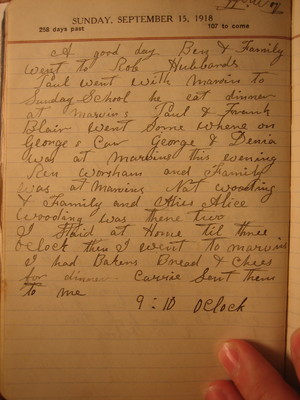 SUNDAY, SEPTEMBER 15, 1918
258 days past 107 to come
A good day Ben & Family
went to Rob Hubbards
Paul went with Marvins to
Sunday School he eat dinner
at Marvins Paul & Frank
Blair went some where on
George's Car George & Denia
was at Marvins this evening
Rev Worsham and Family
was at Marvins Nat Wooding
& Family and Miss Alice
Wooding was there two
I staid at Home til three
oclock then I went to marvins
I had Bakers Bread & Chees
for dinner Carrie Sent them
to me
9:10 Oclock